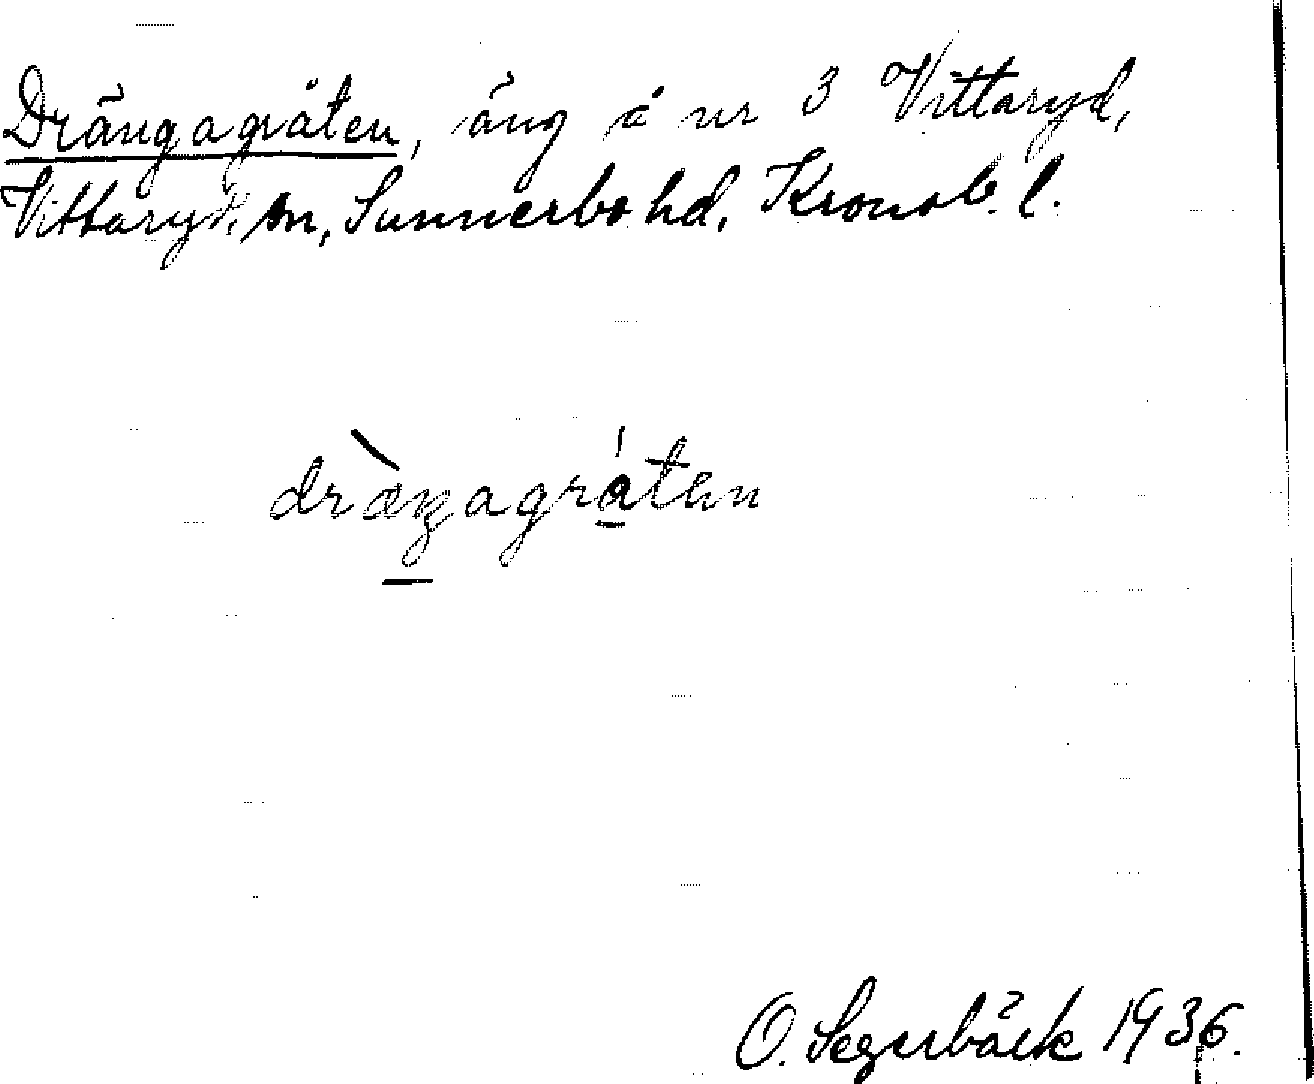 Drängagråten, äng å nr 3 Vittaryd,
Vittaryds sn, Sunnerbo hd, Kronob. l.
dræ̀ŋagrátən
O. Segerbäck 1936.